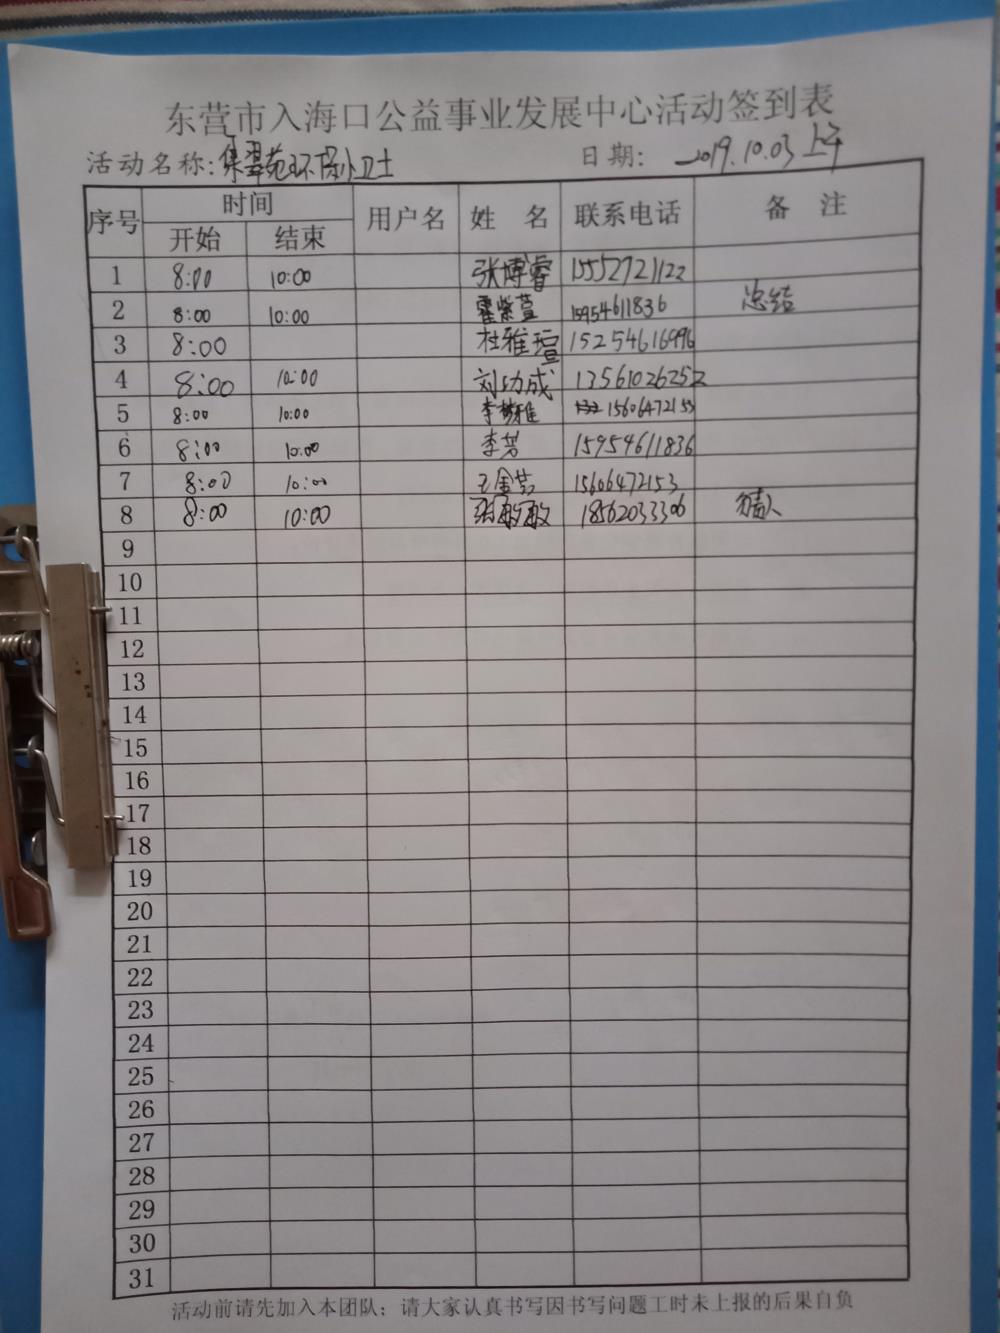 东营市入海口公益事业发展中心活动签到表
活动名称:集翠苑环保小卫士 日期: 2019.10.03 上午
序号 时间 用户名 姓 名 联系电话 备 注
开始 结束
1 8:00 10:00 张博睿 15552721122
2 8:00 10:00 霍紫萱 15954611836 总结
3 8:00 杜雅瑄 15254616996
4 8:00 10:00 刘功成 13561026252
5 8:00 10:00 李 雅 15606472153
6 8:00 10:00 李芳 15954611836
7 8:00 10:00 王金芸 15606472153
8 8:00 10:00 张敏敏 18562033306
9
10
11
12
13
14
15
16
17
18
19
20
21
22
23
24
25
26
27
28
29
30
31
活动前请先加入本团队；请大家认真书写因书写问题工时未上报的后果自负